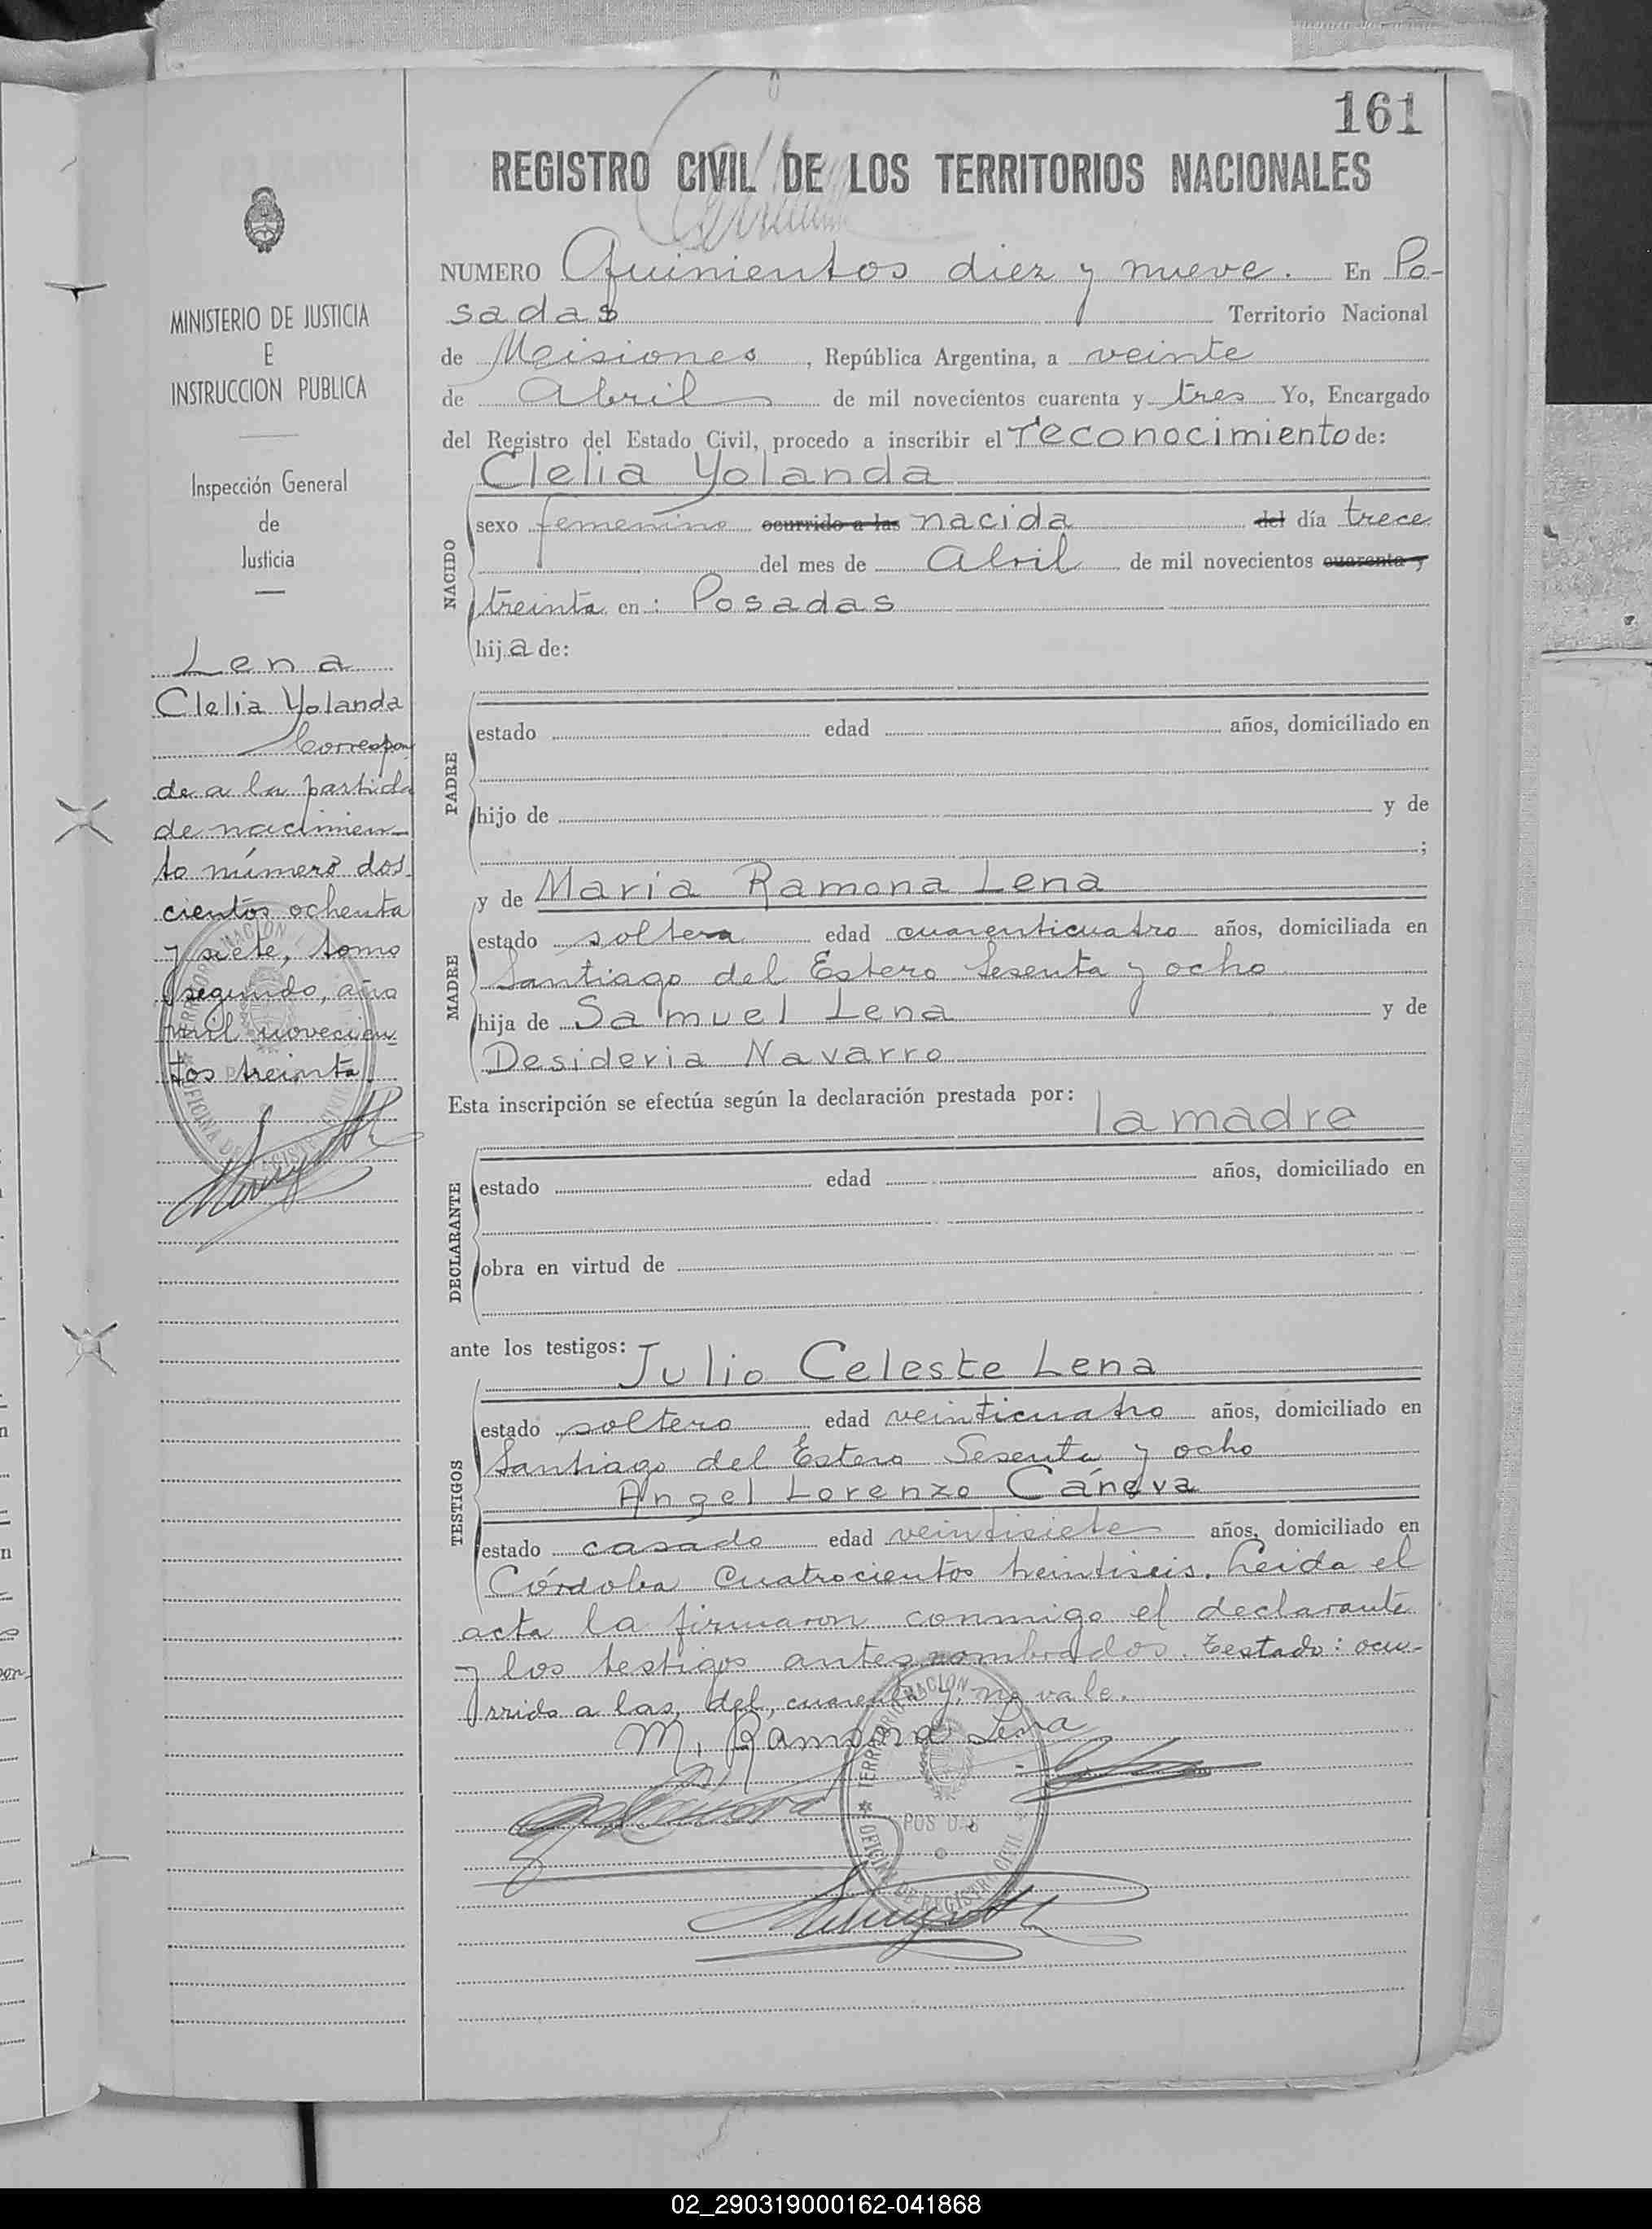 161
REGISTRO CIVIL DE LOS TERRITORIOS NACIONALES
NUMERO Quinientos diez y nueve. En Po-
sadas Territorio Nacional
de Misiones, República Argentina, a veinte
de Abril de mil novecientos cuarenta y tres Yo, Encargado
del Registro del Estado Civil, procedo a inscribir el reconocimiento de:
Clelia Yolanda
NACIDO
sexo femenino ocurrido a las nacida del día trece
del mes de Abril de mil novecientos cuarenta y
treinta en: Posadas
hija de:
PADRE
estado edad años, domiciliado en
hijo de y de
;
y de Maria Ramona Lena
MADRE
estado soltera edad cuarenticuatro años, domiciliada en
Santiago del Estero Sesenta y ocho
hija de Samuel Lena y de
Desideria Navarro
Esta inscripción se efectúa según la declaración prestada por:
la madre
DECLARANTE
estado edad años, domiciliado en
obra en virtud de
ante los testigos:
Julio Celeste Lena
TESTIGOS
estado soltero edad veinticuatro años, domiciliado en
Santiago del Estero Sesenta y ocho
Angel Lorenzo Cánova
estado casado edad veintisiete años, domiciliado en
Córdoba Cuatrocientos treintiseis. Leida el
acta la firmaron conmigo el declarante
y los testigos antes nombrados. Testado: ocu-
rrido a las, del, cuarenta y, no vale.
M. Ramona Lena
MINISTERIO DE JUSTICIA
E
INSTRUCCION PUBLICA
Inspección General
de
Justicia
Lena
Clelia Yolanda
Correspon
de a la partida
de nacimien-
to número dos
cientos ochenta
y siete, tomo
segundo, año
mil novecien
tos treinta.
02_290319000162-041868